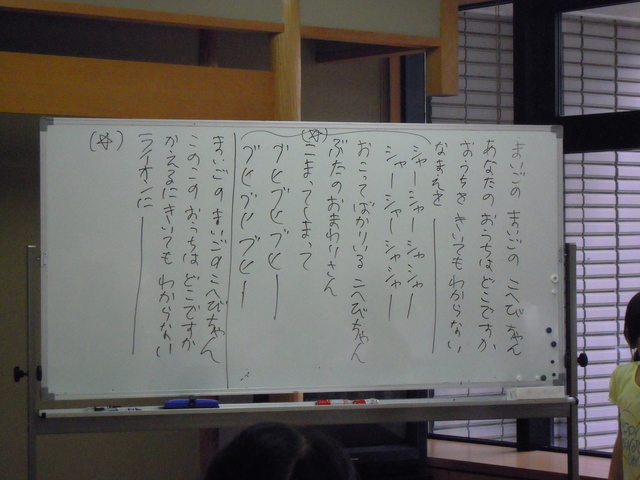 まいごの まいごの こへびちゃん
あなたの おうちは どこですか
おうちを きいても わからない
なまえを ―――
シャーシャー シャシャー
シャーシャー シャシャー
おこってばかりいる こへびちゃん
ぶたの おまわりさん
(☆)
こまってしまって
ブヒ ブヒ ブヒー
ブヒ ブヒ ブヒー
まいごの まいごの こへびちゃん
このこの おうちは どこですか
かえるに きいても わからない
ライオンに ―――
(☆)